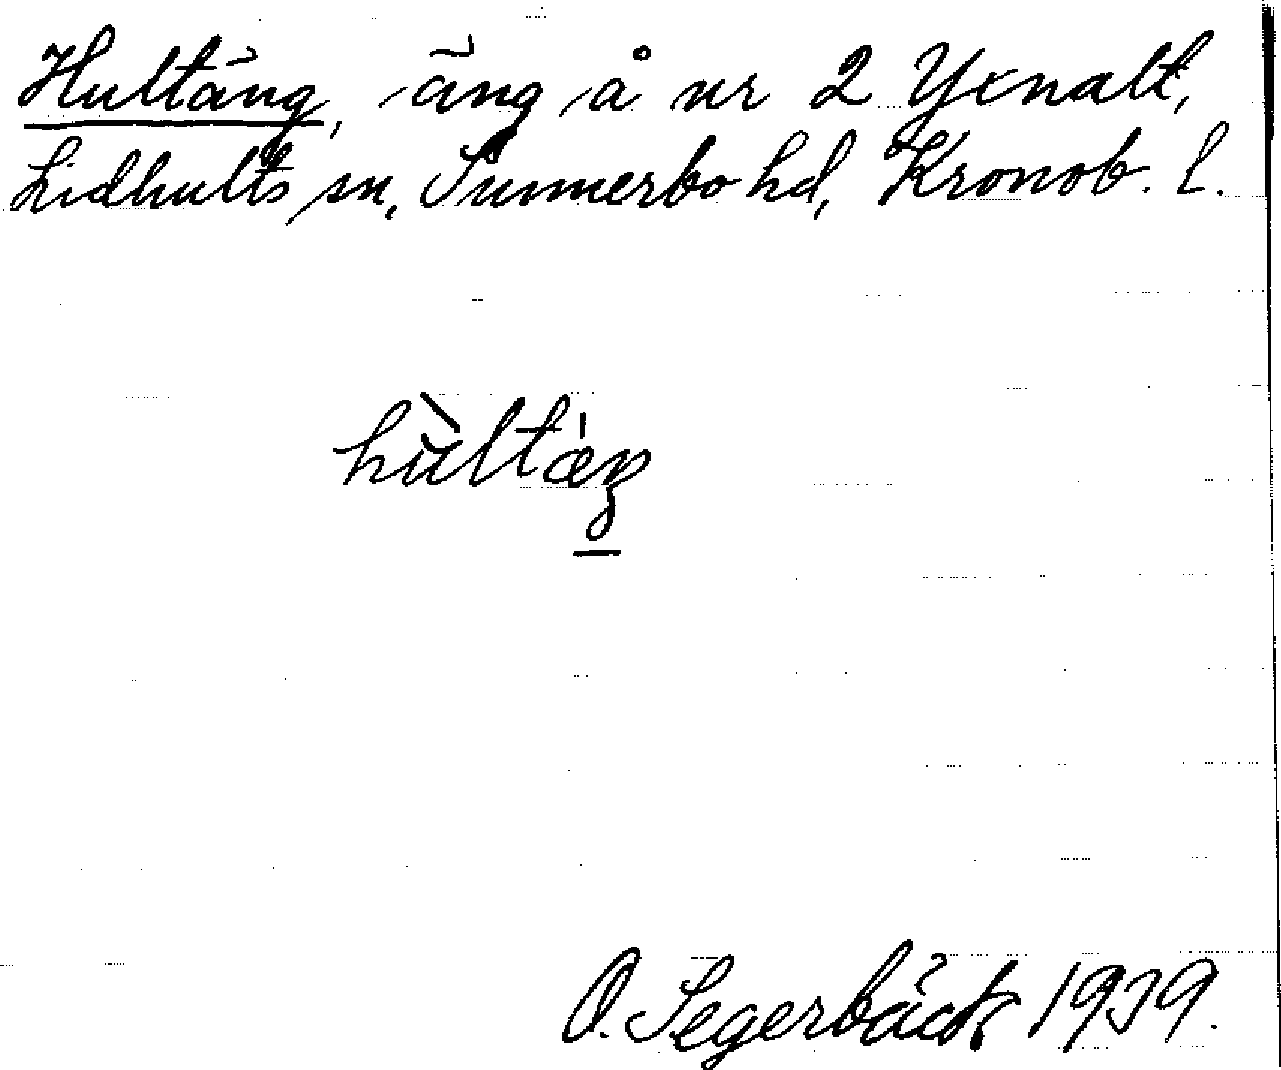 Hultäng, äng å nr 2 Yxnalt,
Lidhults sn, Sunnerbo hd, Kronob. l.
hùltæŋ
O. Segerbäck 1939.